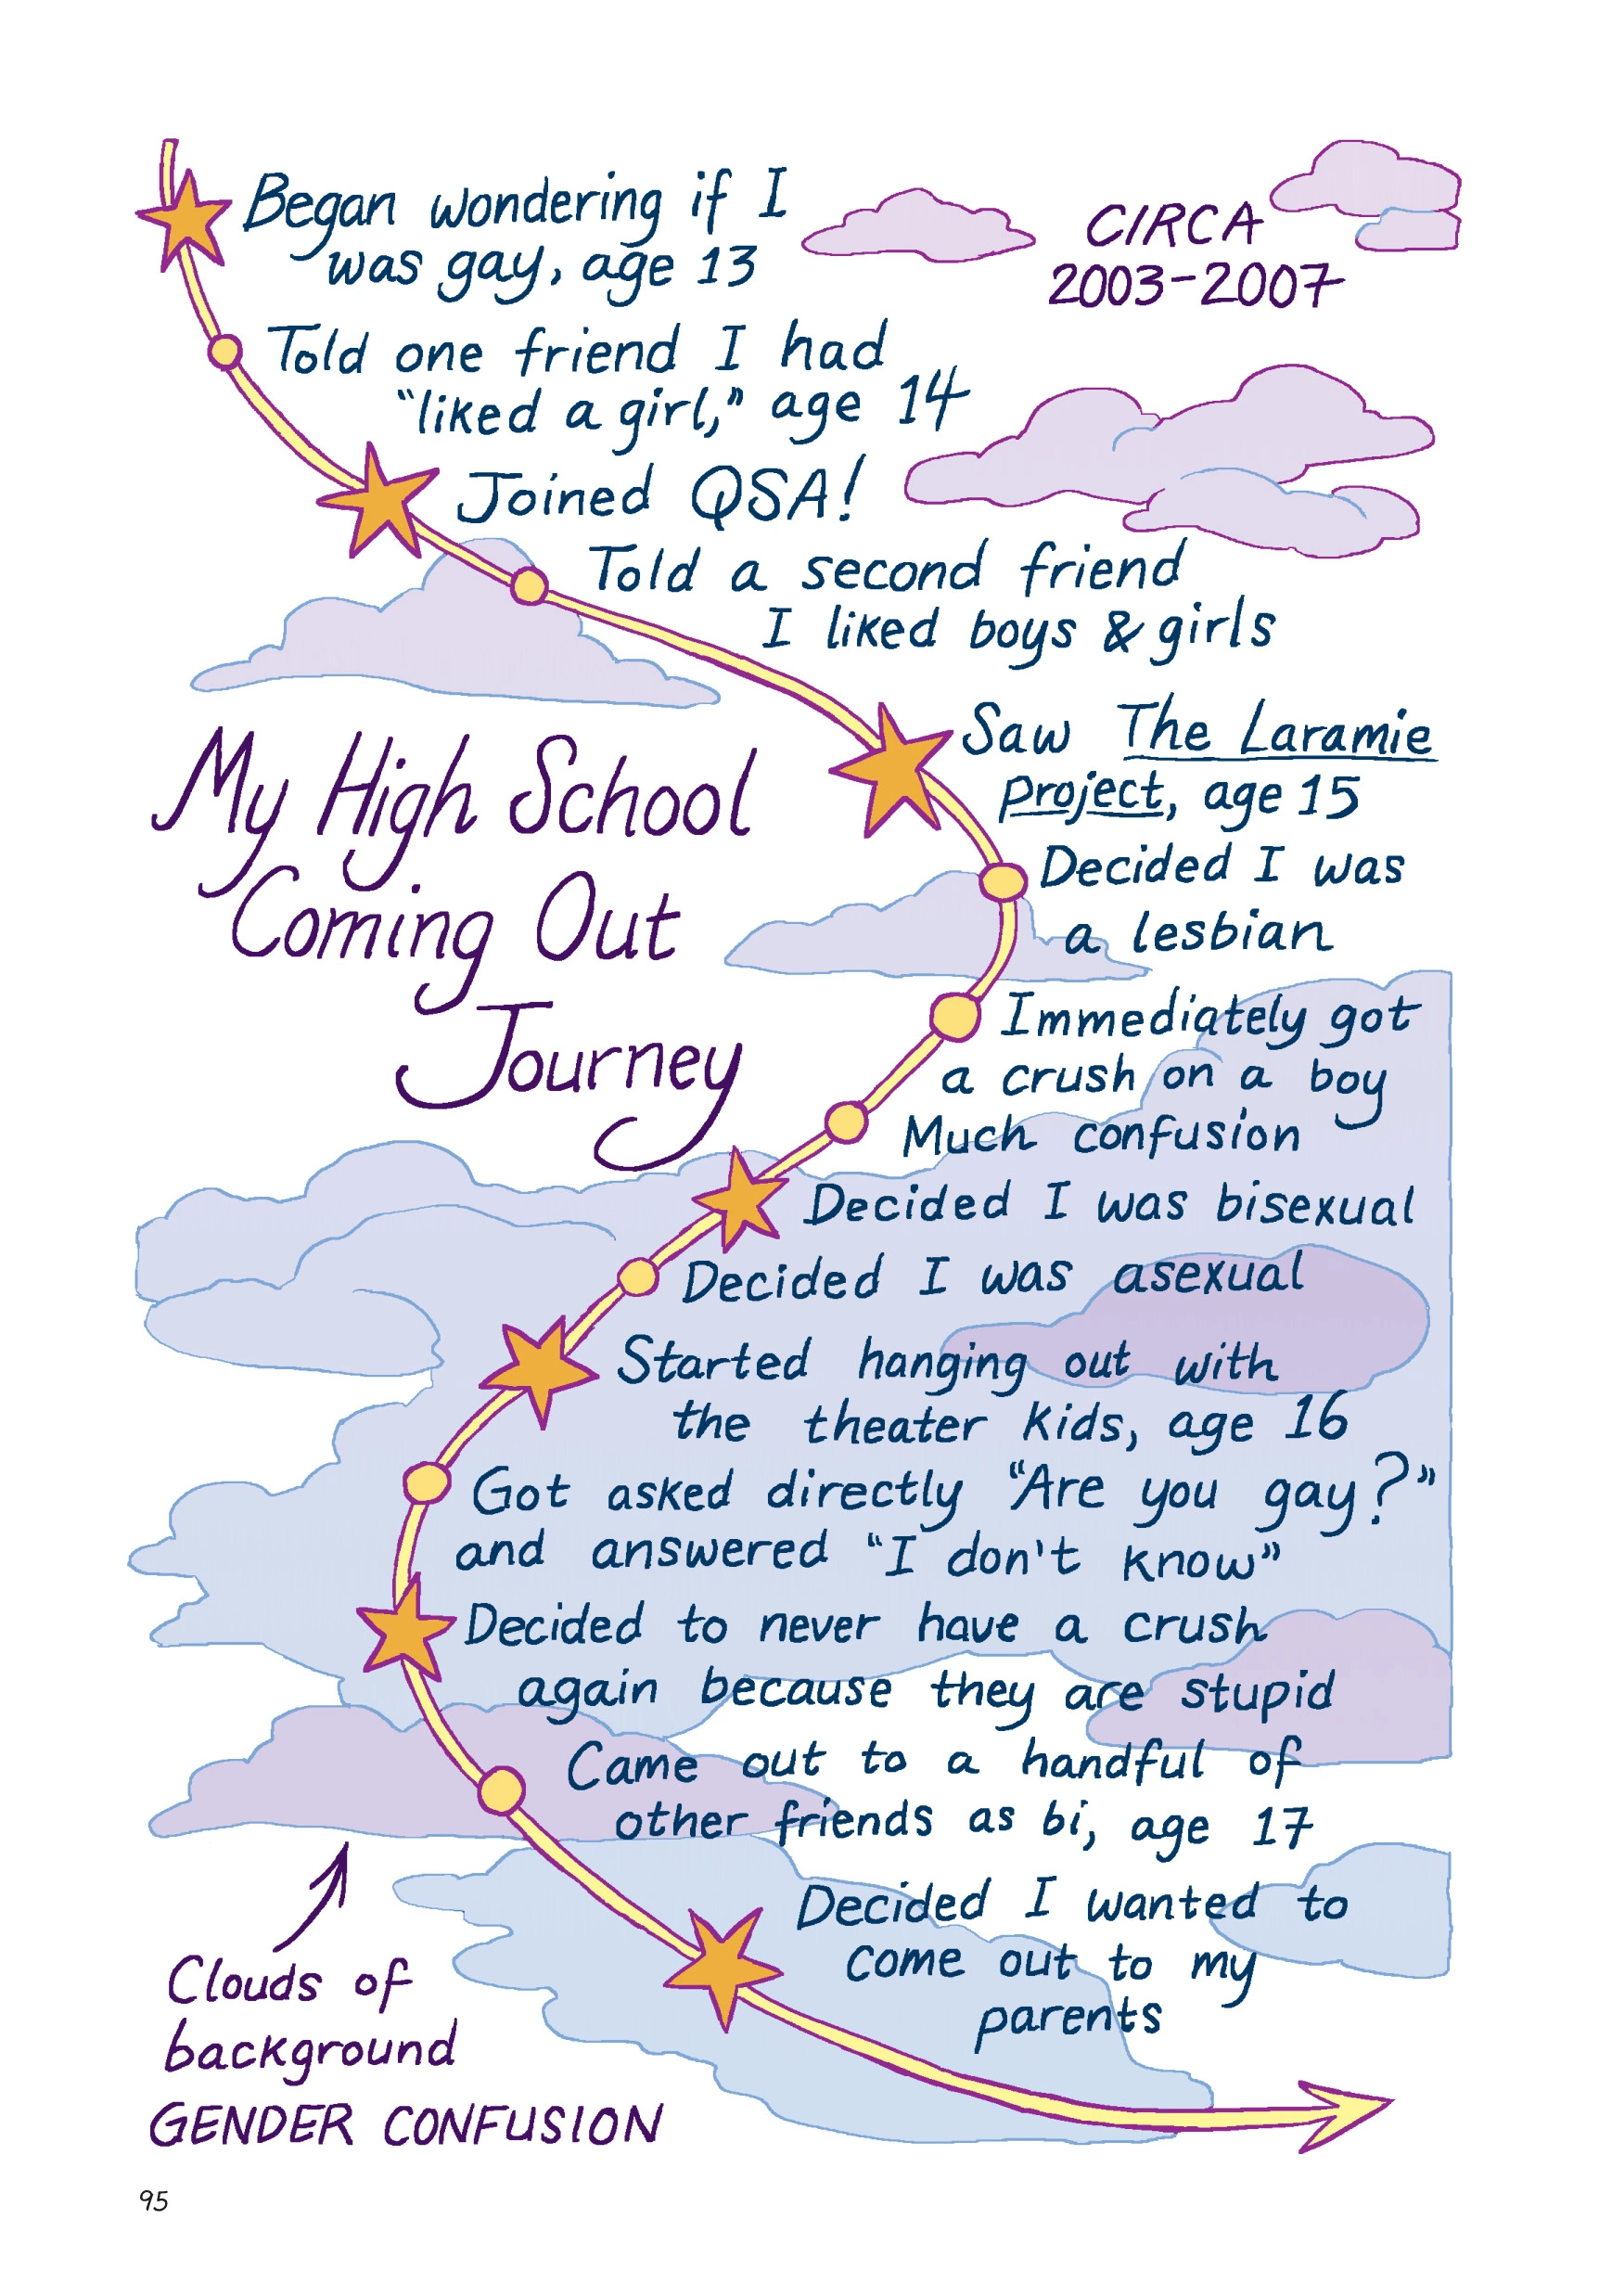 Began wondering if I
was gay, age 13
CIRCA
2003-2007
Told one friend I had
"liked a girl," age 14
Joined QSA!
Told a second friend
I liked boys & girls
My High School
Coming Out
Journey
Saw The Laramie
Project, age 15
Decided I was
a lesbian
Immediately got
a crush on a boy
Much confusion
Decided I was bisexual
Decided I was asexual
Started hanging out with
the theater kids, age 16
Got asked directly "Are you gay?"
and answered "I don't know"
Decided to never have a crush
again because they are stupid
Came out to a handful of
other friends as bi, age 17
Decided I wanted to
come out to my
parents
Clouds of
background
GENDER CONFUSION
95